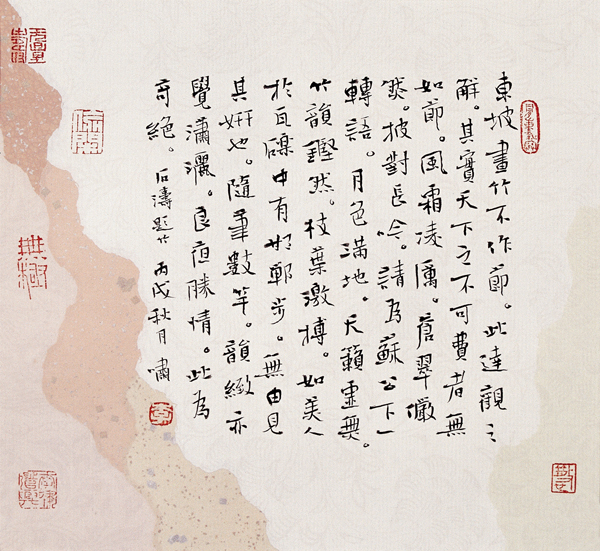 東坡畫竹不作節。此達觀之
解。其實天下之不可費者無
如節。風霜凌厲。蒼翠儼
然。披對長吟。請為蘇公下一
轉語。月色滿地。天籟虛無。
竹韻鏗然。枝葉激搏。如美人
於瓦礫中有邯鄲步。無由見
其妍也。隨筆數竿。韻緻亦
覺瀟灑。良夜勝情。此為
奇絕。石濤題竹 丙戌秋月 嘯